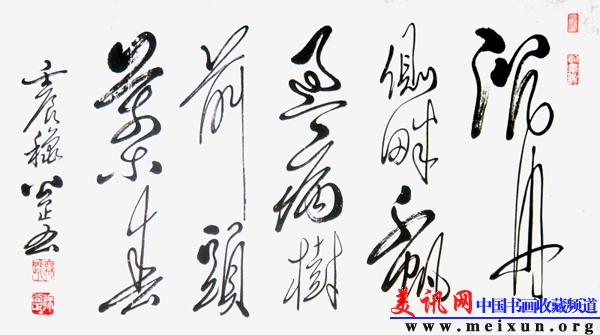 沉舟
側畔千帆
過病樹
前頭
萬木春
壬辰穐書
美讯网 中国书画收藏频道
www.meixun.org